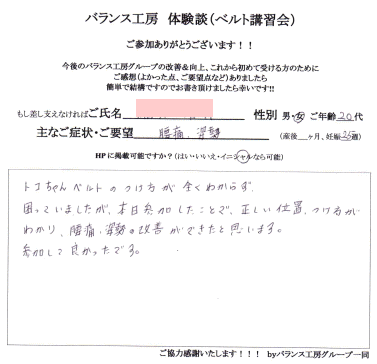 バランス工房 体験談（ベルト講習会）
ご参加ありがとうございます！！
今後のバランス工房グループの改善＆向上、これから初めて受ける方のために
ご感想（よかった点、ご要望点など）ありましたら
簡単で結構ですのでお書き頂けましたら幸いです!!
もし差し支えなければご氏名 性別 男・女 ご年齢20代
主なご症状・ご要望 腰痛、姿勢 （産後 ヶ月、妊娠 週）
HPに掲載可能ですか？（はい・いいえ・イニシャルなら可能）
トコちゃんベルトのつけ方が全くわからず、
困っていましたが、本日参加したことで、正しい位置、つけ方が
わかり、腰痛、姿勢の改善ができたと思います。
参加して良かったです。
ご協力感謝いたします！！！ byバランス工房グループ一同